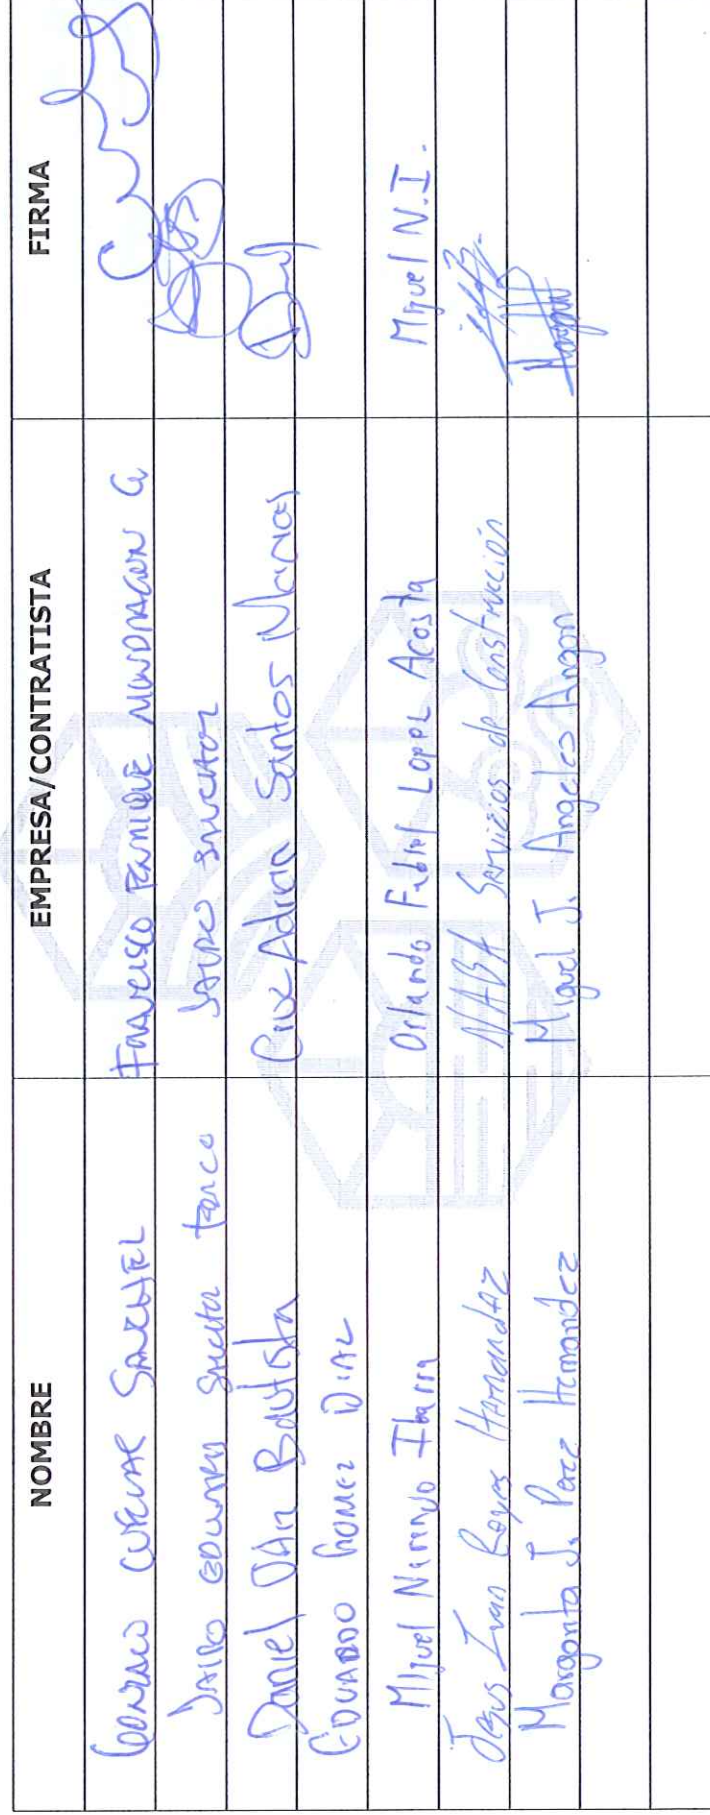 NOMBRE EMPRESA/CONTRATISTA FIRMA
Sanchez Francisco Enrique Mondragon G
Jairo Eduardo Sanchez Jairo Sanchez
Daniel Bautista Cruz Adrian Santos Macias
EDUARDO GOMEZ DIAZ
Miguel Naranjo Ibarra Orlando Fabief Lopez Acosta Miguel N.I.
Jesus Ivan Reyes Hernandez NABA Servicios de Construcción
Margarita J. Perez Hernandez Miguel J. Angeles Angon